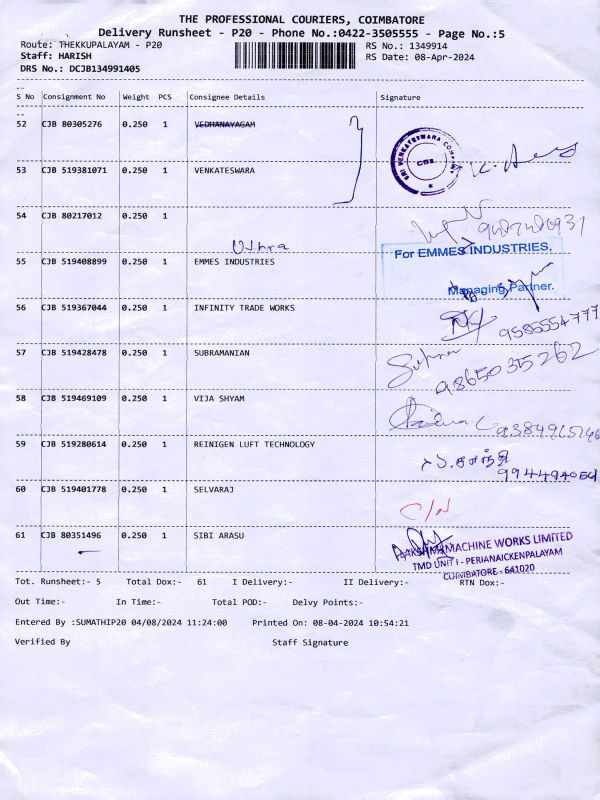 THE PROFESSIONAL COURIERS, COIMBATORE
Delivery Runsheet - P20 - Phone No.:0422-3505555 - Page No.:5
Route: THEKKUPALAYAM - P20 RS No.: 1349914
Staff: HARISH RS Date: 08-Apr-2024
DRS No.: DCJB134991405
S No Consignment No Weight PCS Consignee Details Signature
52 CJB 80305276 0.250 1 VEDHANAYAGAM
SRI VENKATESWARA COMPANY
CBE
53 CJB 519381071 0.250 1 VENKATESWARA
54 CJB 80217012 0.250 1
Uthra
For EMMES INDUSTRIES,
55 CJB 519408899 0.250 1 EMMES INDUSTRIES
Managing Partner.
56 CJB 519367044 0.250 1 INFINITY TRADE WORKS
9585554777
57 CJB 519428478 0.250 1 SUBRAMANIAN
9865035262
58 CJB 519469109 0.250 1 VIJA SHYAM
59 CJB 519280614 0.250 1 REINIGEN LUFT TECHNOLOGY
60 CJB 519401778 0.250 1 SELVARAJ
C/N
61 CJB 80351496 0.250 1 SIBI ARASU
LAKSHMI MACHINE WORKS LIMITED
TMD UNIT I - PERIANAICKENPALAYAM
COIMBATORE - 641020
Tot. Runsheet:- 5 Total Dox:- 61 I Delivery:- II Delivery:- RTN Dox:-
Out Time:- In Time:- Total POD:- Delvy Points:-
Entered By :SUMATHIP20 04/08/2024 11:24:00 Printed On: 08-04-2024 10:54:21
Verified By Staff Signature